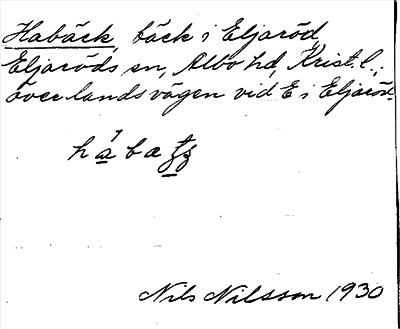 Habäck, bäck i Eljaröd,
Eljaröds sn, Albo hd, Krist. l.;
över landsvägen vid E i Eljaröd.
Nils Nilsson 1930